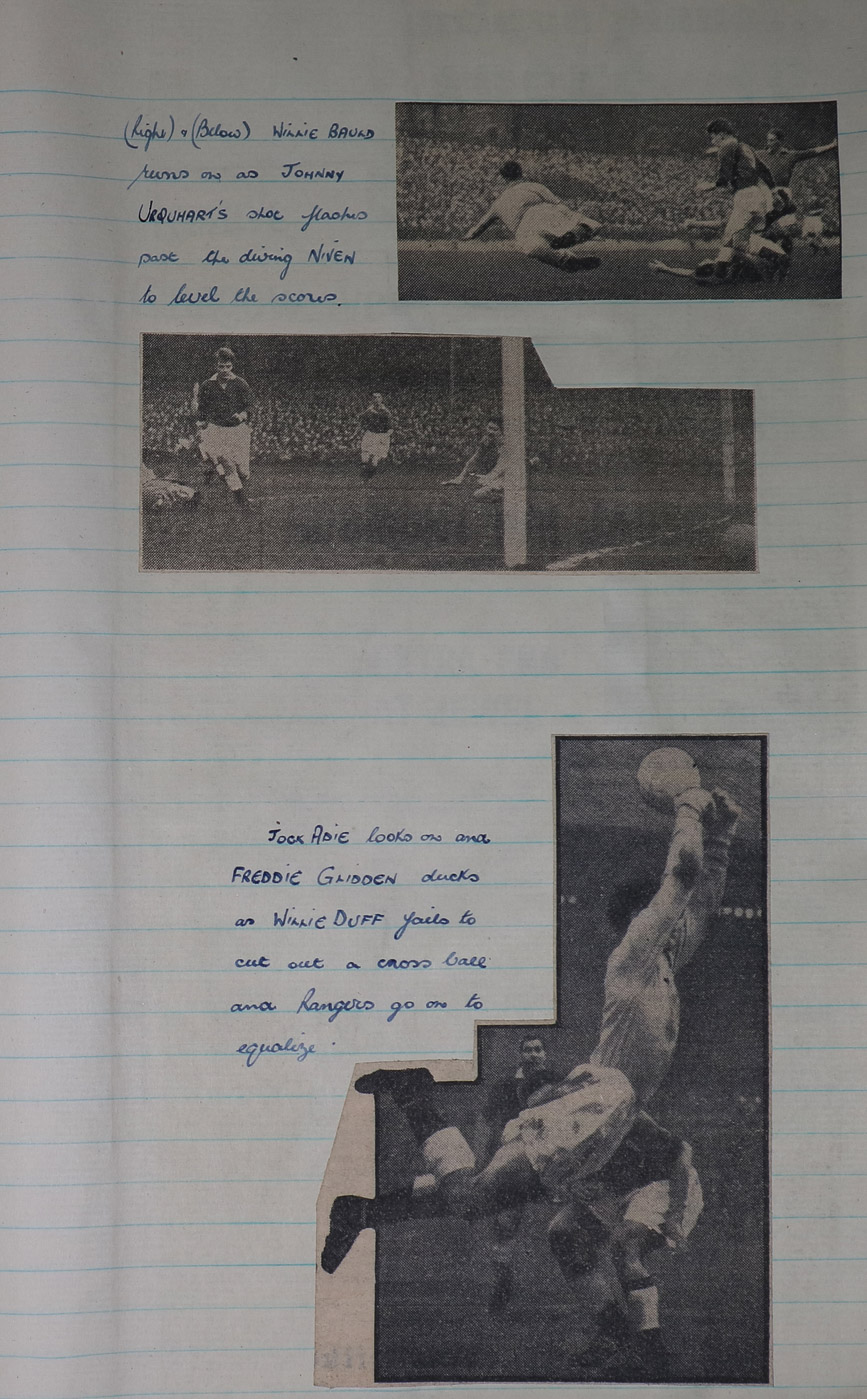 (Right) & (Below) WILLIE BAULD
runs on as JOHNNY
URQUHART'S shot flashes
past the diving NIVEN
to level the scores.
JOCK ADIE looks on and
FREDDIE GLIDDEN ducks
as WILLIE DUFF fails to
cut out a cross ball
and Rangers go on to
equalize.